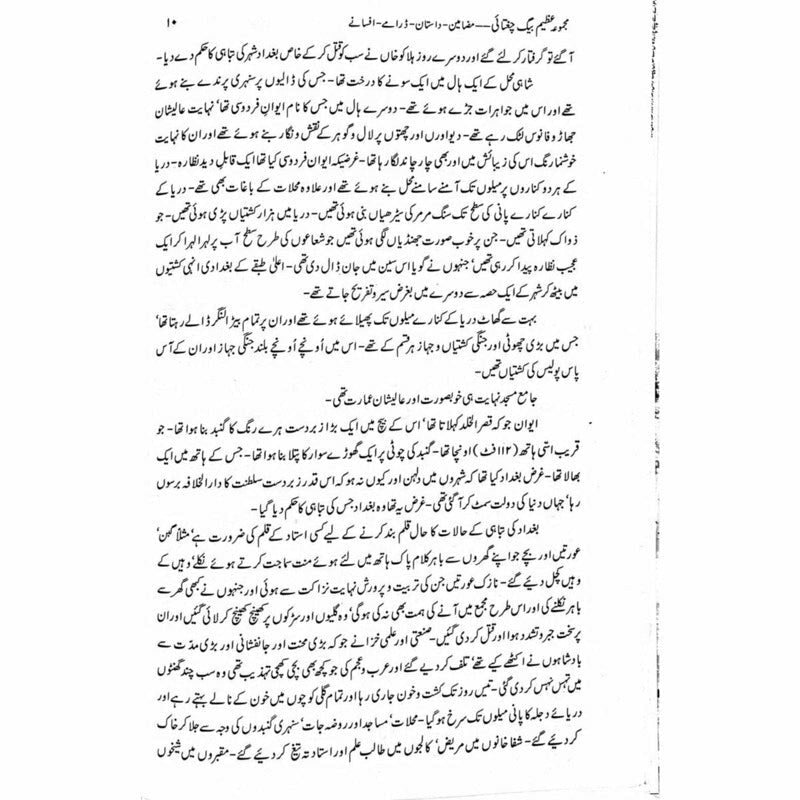 مجموعہ عظیم بیگ چغتائی — مضامین - داستان - ڈرامے - افسانے ۱۰
آگئے تو گرفتار کر لئے گئے اور دوسرے روز ہلاکو خاں نے سب کو قتل کر کے خاص بغداد شہر کی تباہی کا حکم دے دیا-
شاہی محل کے ایک ہال میں ایک سونے کا درخت تھا- جس کی ڈالیوں پر سنہری پرندے بنے ہوئے
تھے اور اس میں جواہرات جڑے ہوئے تھے- دوسرے ہال میں جس کا نام ایوانِ فردوسی تھا' نہایت عالیشان
جھاڑ و فانوس لٹک رہے تھے- دیواروں اور چھتوں پر لال و گوہر کے نقش و نگار بنے ہوئے تھے اور ان کا نہایت
خوشنما رنگ اس کی زیبائش میں اور بھی چار چاند لگا رہا تھا- غرضیکہ ایوان فردوسی کیا تھا ایک قابلِ دید نظارہ- دریا
کے ہر دو کناروں پر میلوں تک آمنے سامنے محل بنے ہوئے تھے اور علاوہ محلات کے باغات بھی تھے- دریا کے
کنارے کنارے پانی کی سطح تک سنگ مرمر کی سیڑھیاں بنی ہوئی تھیں- دریا میں ہزار کشتیاں پڑی ہوئی تھیں- جو
ذواک کہلاتی تھیں- جن پر خوب صورت جھنڈیاں لگی ہوئی تھیں جو شعاعوں کی طرح سطح آب پر لہرا لہرا کر ایک
عجیب نظارہ پیدا کر رہی تھیں' جنہوں نے گویا اس سین میں جان ڈال دی تھی- اعلیٰ طبقے کے بغدادی انہی کشتیوں
میں بیٹھ کر شہر کے ایک حصہ سے دوسرے میں بغرض سیر و تفریح جاتے تھے-
بہت سے گھاٹ دریا کے کنارے میلوں تک پھیلائے ہوئے تھے اور ان پر تمام بیڑا لنگر ڈالے رہتا تھا'
جس میں بڑی چھوٹی اور جنگی کشتیاں و جہاز ہر قسم کے تھے- اس میں اُونچے اُونچے بلند جنگی جہاز اور ان کے آس
پاس پولیس کی کشتیاں تھیں-
جامع مسجد نہایت ہی خوبصورت اور عالیشان عمارت تھی-
ایوان جو کہ قصر الخلد کہلاتا تھا' اس کے بیچ میں ایک بڑا زبردست ہرے رنگ کا گنبد بنا ہوا تھا- جو
قریب اسّی ہاتھ (۱۱۲ فٹ) اونچا تھا- گنبد کی چوٹی پر ایک گھوڑے سوار کا پتلا بنا ہوا تھا- جس کے ہاتھ میں ایک
بھالا تھا- غرض بغداد کیا تھا کہ شہروں میں دلہن اور کیوں نہ ہو کہ اس قدر زبردست سلطنت کا دار الخلافہ برسوں
رہا' جہاں دنیا کی دولت سمٹ کر آگئی تھی- غرض یہ تھا وہ بغداد جس کی تباہی کا حکم دیا گیا-
بغداد کی تباہی کے حالات کا حال قلم بند کرنے کے لیے کسی استاد کے قلم کی ضرورت ہے' مثلاً گبن'
عورتیں اور بچے جو اپنے گھروں سے باہر کلام پاک ہاتھ میں لئے ہوئے منت سماجت کرتے ہوئے نکلے' وہیں کے
وہیں کچل دیے گئے- نازک عورتیں جن کی تربیت و پرورش نہایت نزاکت سے ہوئی اور جنہوں نے کبھی گھر سے
باہر نکلنے کی اور اس طرح مجمع میں آنے کی ہمت بھی نہ کی ہوگی' وہ گلیوں اور سڑکوں پر کھینچ کھینچ کر لائی گئیں اور ان
پر سخت جبر و تشدد ہوا اور قتل کر دی گئیں- صنعتی اور علمی خزانے جو کہ بڑی محنت اور جانفشانی اور بڑی مدت سے
بادشاہوں نے اکٹھے کیے تھے' تلف کر دیے گئے اور عرب و عجم کی جو کچھ بھی بچی کھچی تہذیب تھی وہ سب چند گھنٹوں
میں تہس نہس کر دی گئی- تیس روز تک کشت و خون جاری رہا اور تمام گلی کوچوں میں خون کے نالے بہتے رہے اور
دریائے دجلہ کا پانی میلوں تک سرخ ہو گیا- محلات' مساجد اور روضہ جات' سنہری گنبدوں کی وجہ سے جلا کر خاک
کر دیے گئے- شفا خانوں میں مریض' کالجوں میں طالب علم اور استاد تہ تیغ کر دیے گئے- مقبروں میں شیخوں